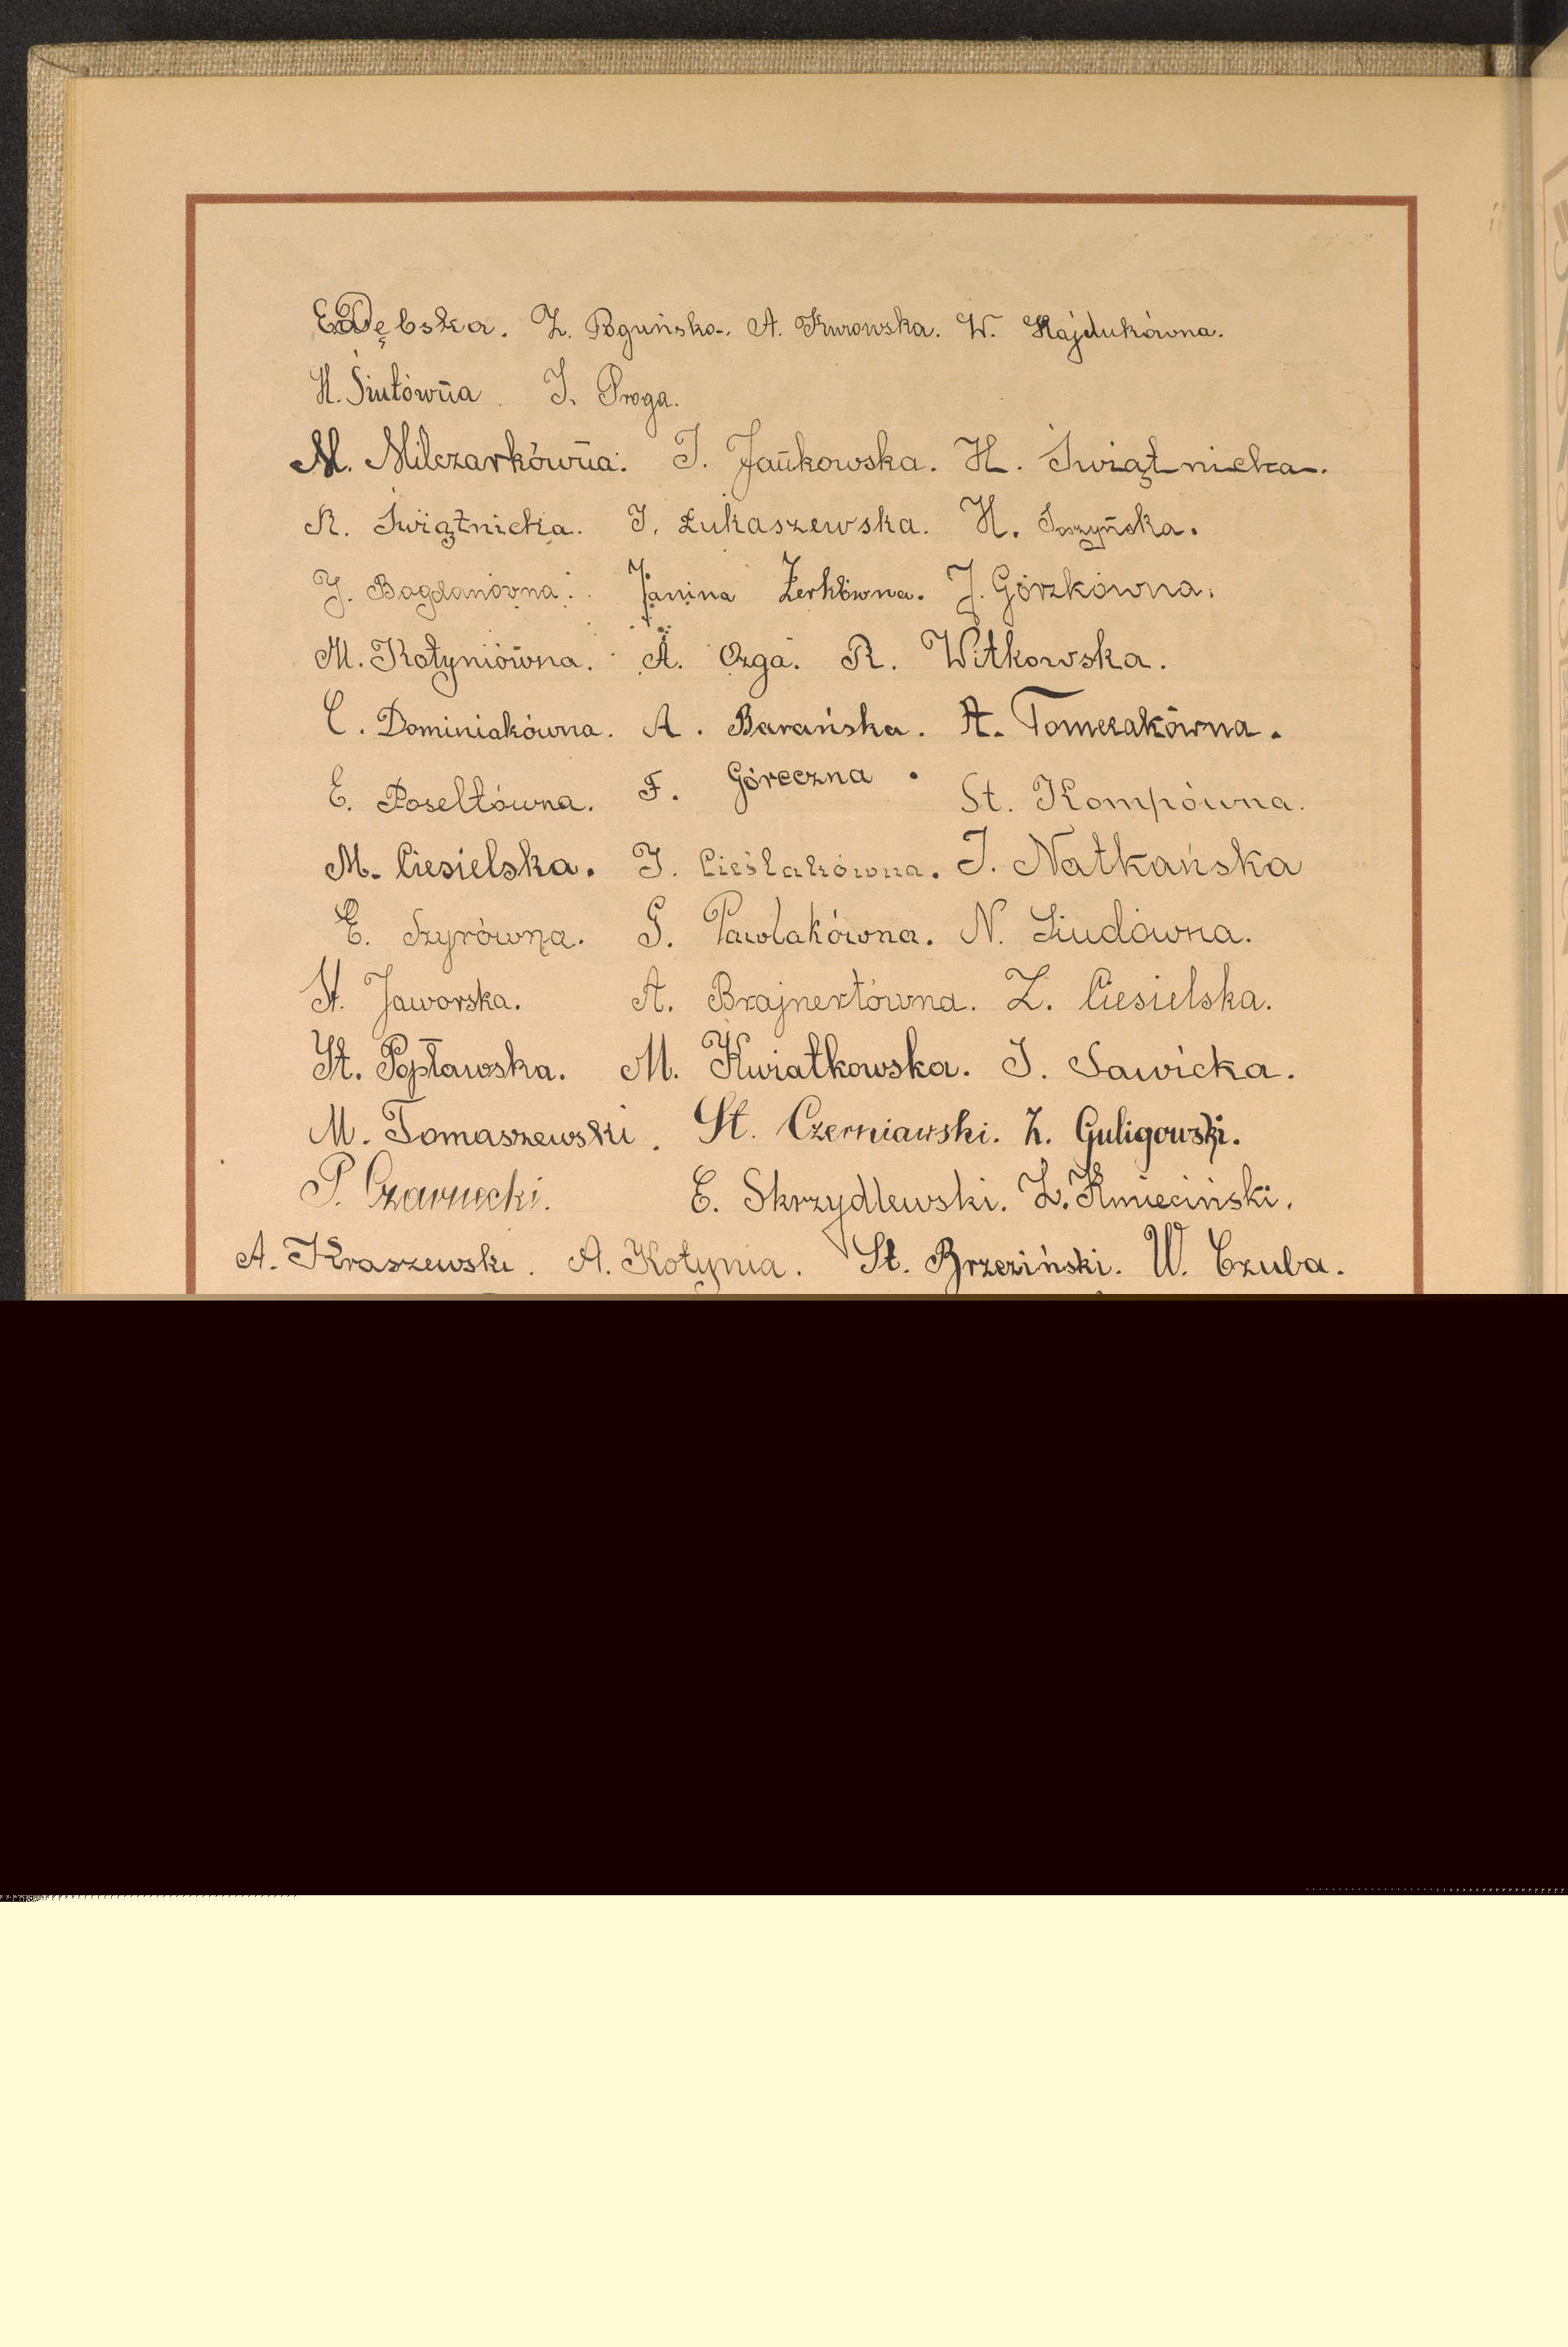 E. Dębska. Z. Poguńska. A. Kurowska. W. Hajdukówna.
H. Siutówna. I. Proga.
M. Milczarkówna. I. Jankowska. H. Świątnicka.
R. Świątnicka. I. Łukaszewska. H.
J. Bogdanówna. Janina Żerkówna. J. Górzkówna.
M. Kołyniówna. A. Ozga. R. Witkowska.
C. Dominiakówna. A. Barańska. A. Tomczakówna.
E. Poseltówna. F. Góreczna. St. Kompówna.
M. Ciesielska. I. Cieślakówna. I. Natkańska
E. Szyrówna. G. Pawlakówna. N. Siudówna.
St. Jaworska. A. Brajnertówna. Z. Ciesielska.
St. Popławska. M. Kwiatkowska. I. Sawicka.
M. Tomaszewski. St. Czerniawski. Z. Guligowski.
P. Czarnecki. E. Skrzydlewski. Z. Kmieciński.
A. Kraszewski. A. Kotynia. St. Brzeziński. W. Czuba.